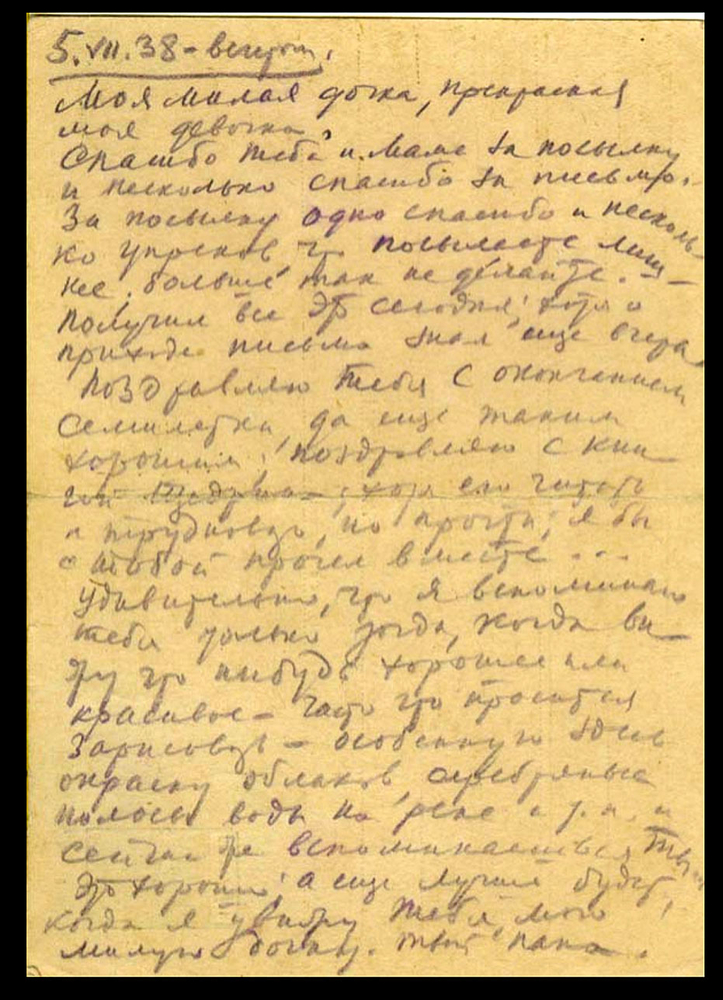 5.VII.38 - вечером.
Моя милая дочка, прекрасная
моя девочка,
Спасибо тебе и маме за посылку
и несколько спасибо за письмо.
За посылку одно спасибо и несколь-
ко упреков, что посылаете лиш-
нее, больше так не делайте. -
получил все это сегодня, хотя о
приходе письма знал еще вчера
Поздравляю тебя с окончанием
семилетки, да еще таким
хорошим, поздравляю с кни-
гой ; хотя его читать
и трудновато, но прочти; я бы
с тобой прочел вместе...
Удивительно, что я вспоминаю
тебя только тогда, когда ви-
жу что нибудь хорошее или
красивое - часто что просится
зарисовать - особенную здесь
окраску облаков, серебряные
полосы воды на реке и т.п. и
сейчас же вспоминаешься ты.
Это хорошо, а еще лучше будет,
когда я увижу тебя, мою
милую дочку. твой папа.